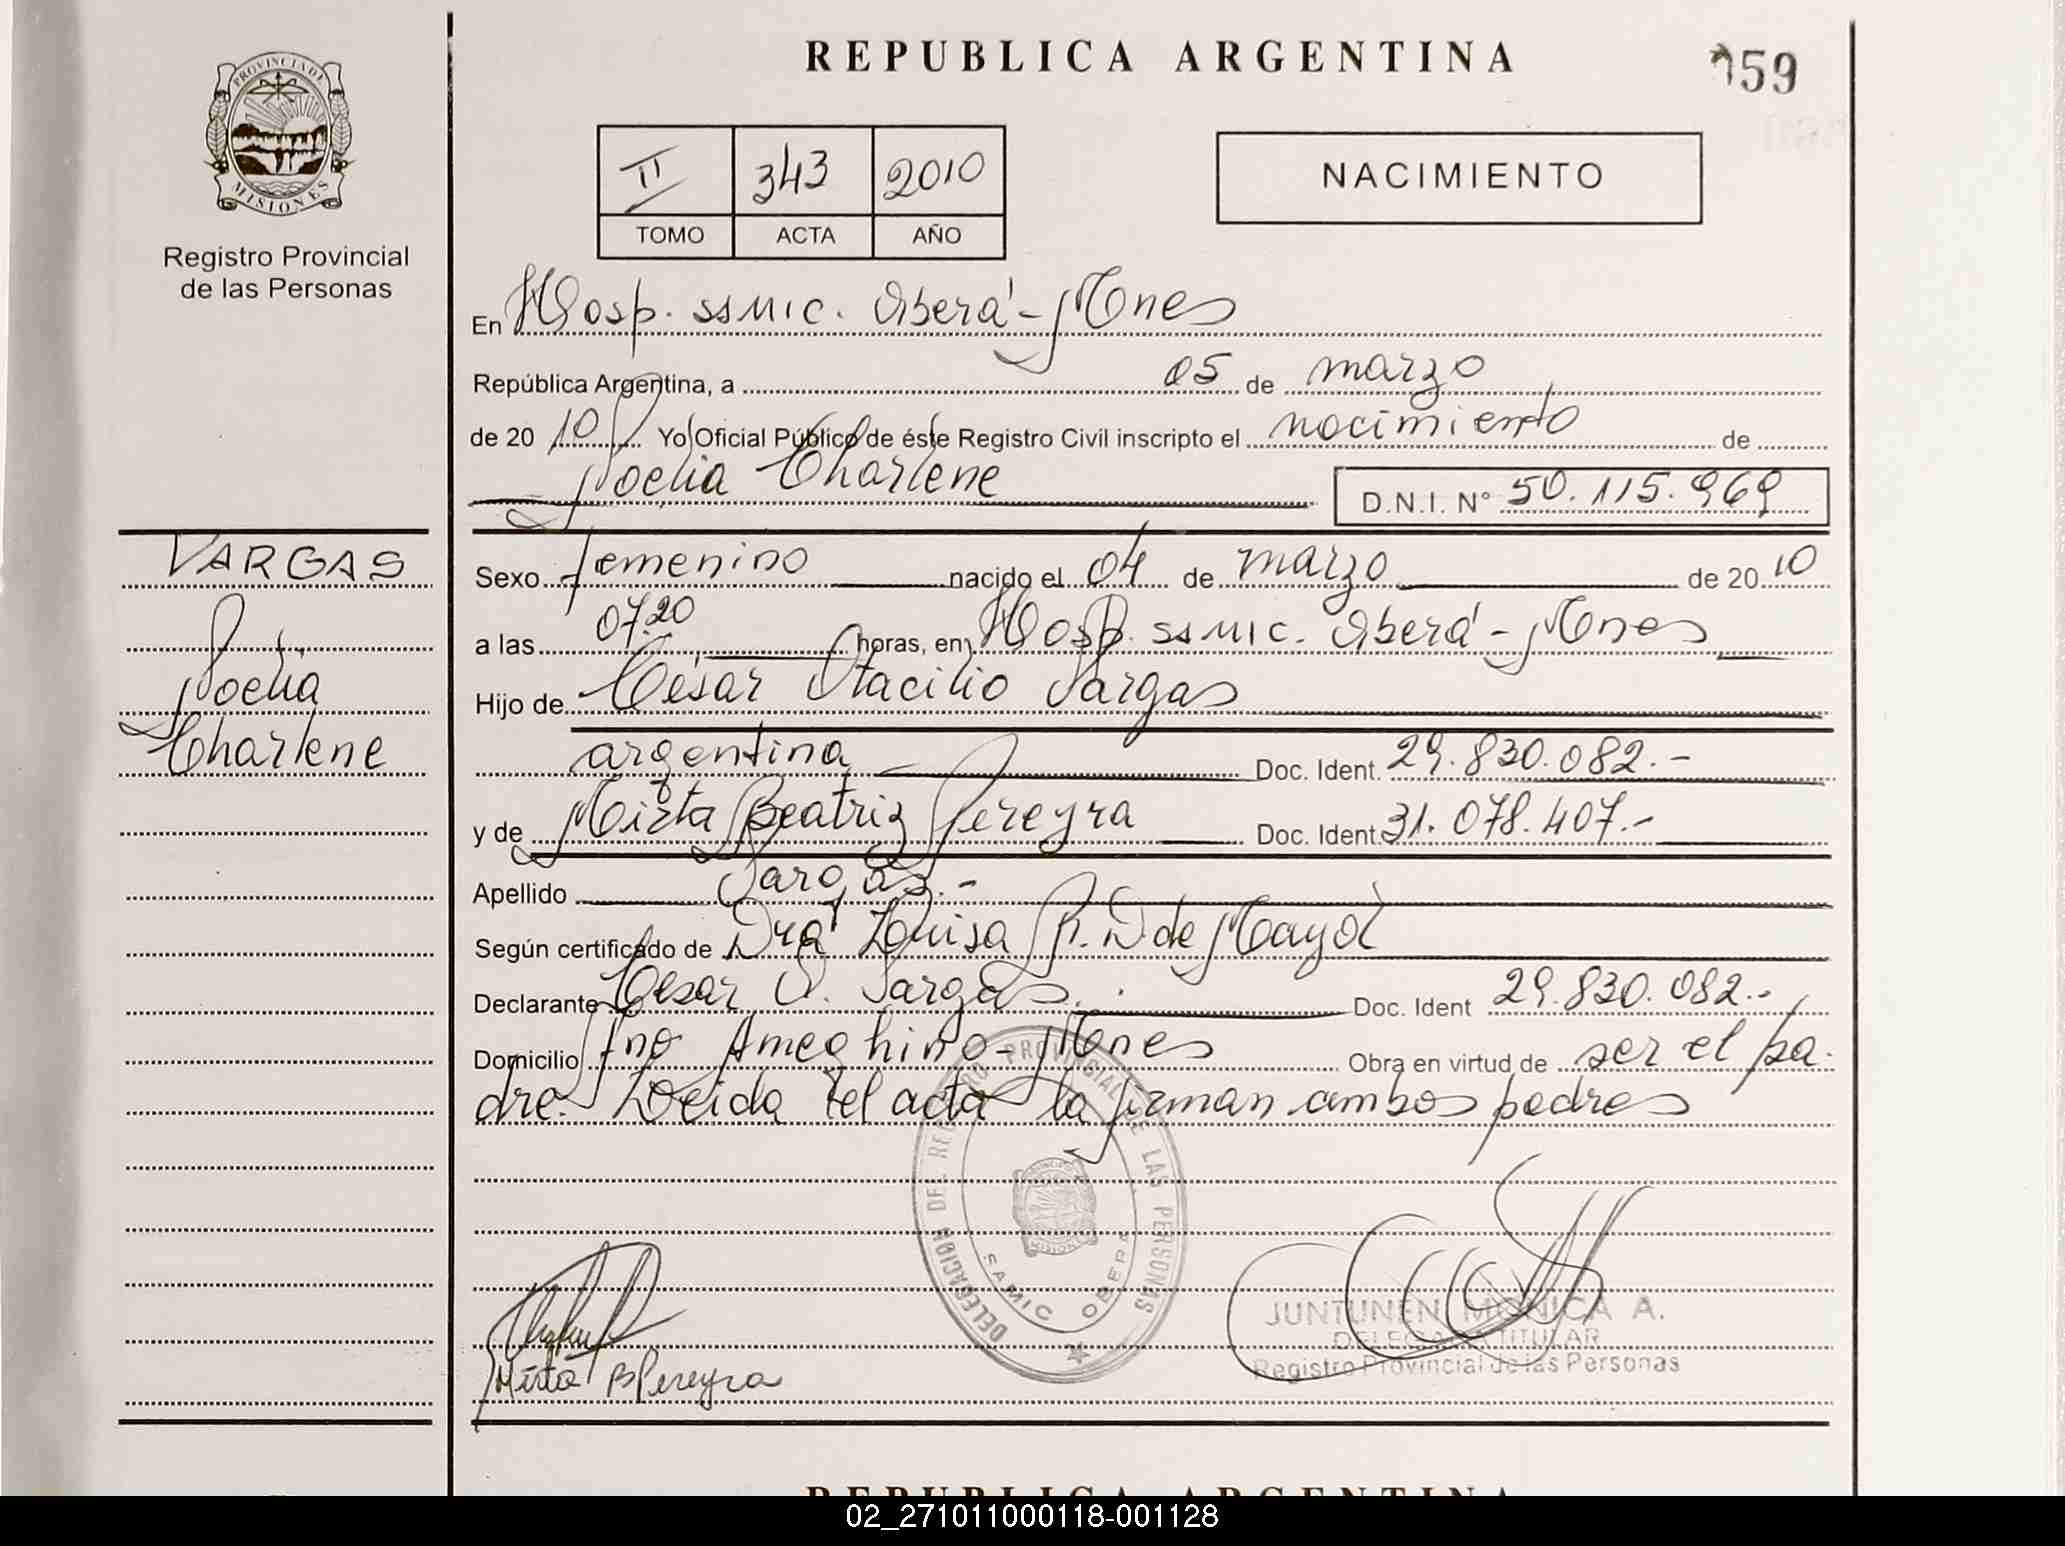 REPUBLICA ARGENTINA
159
PROVINCIA DE
MISIONES
Registro Provincial
de las Personas
II 343 2010
TOMO ACTA AÑO
NACIMIENTO
En Hosp. SSMIC. Oberá - Mnes
República Argentina, a 05 de marzo
de 20 10 Yo Oficial Público de éste Registro Civil inscripto el nacimiento de
Noelia Charlene D.N.I. N° 50.115.969
VARGAS
Noelia
Charlene
Sexo femenino nacido el 04 de marzo de 20 10
a las 07.20 horas, en Hosp. SSMIC. Oberá - Mnes
Hijo de César Otacilio Vargas
argentina Doc. Ident. 29.830.082.-
y de Mirta Beatriz Pereyra Doc. Ident. 31.078.407.-
Apellido Vargas.-
Según certificado de Dra Luisa R. D de Mayol
Declarante Cesar O. Vargas. Doc. Ident 29.830.082.-
Domicilio Fno Ameghino - Mnes Obra en virtud de ser el pa-
dre. Leida el acta la firman ambos padres
DELEGACION DEL REGISTRO PROVINCIAL DE LAS PERSONAS
SAMIC OBERA
Mirta B Pereyra
JUNTUNEN MONICA A.
DELEGADA TITULAR
Registro Provincial de las Personas
REPUBLICA ARGENTINA
02_271011000118-001128